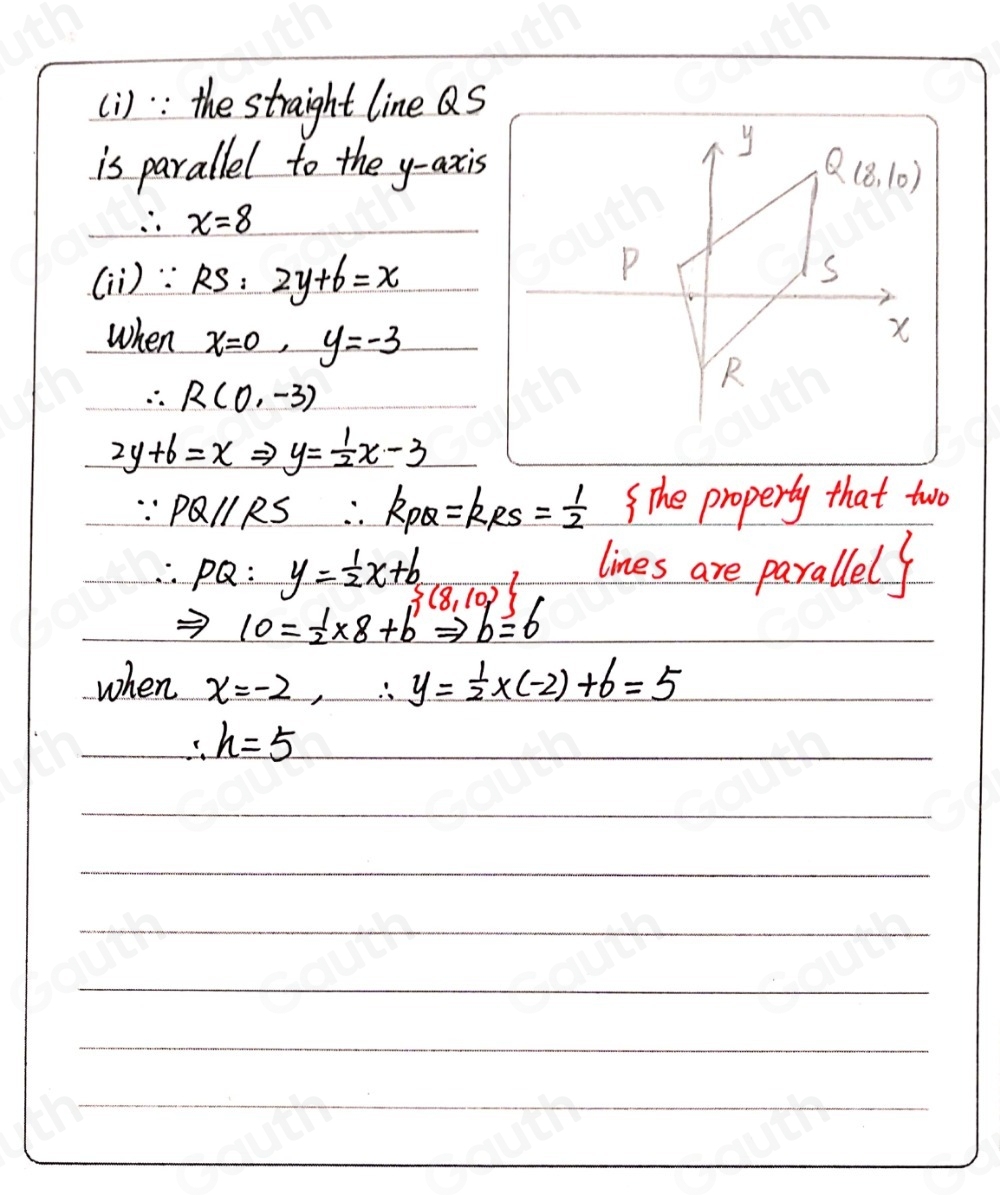 (i) ∵ the straight line QS
is parallel to the y-axis
∴ x=8
(ii) ∵ RS: 2y+6=x
When x=0, y=-3
∴ R(0,-3)
2y+6=x ⇒ y=1/2x-3
∵ PQ//RS ∴ kPQ=kRS=1/2 {the property that two
lines are parallel}
∴ PQ: y=1/2x+b
{(8,10)}
⇒ 10=1/2×8+b ⇒ b=6
when x=-2, ∴ y=1/2×(-2)+6=5
∴ h=5
y
Q(8,10)
P
S
x
R
Gauth